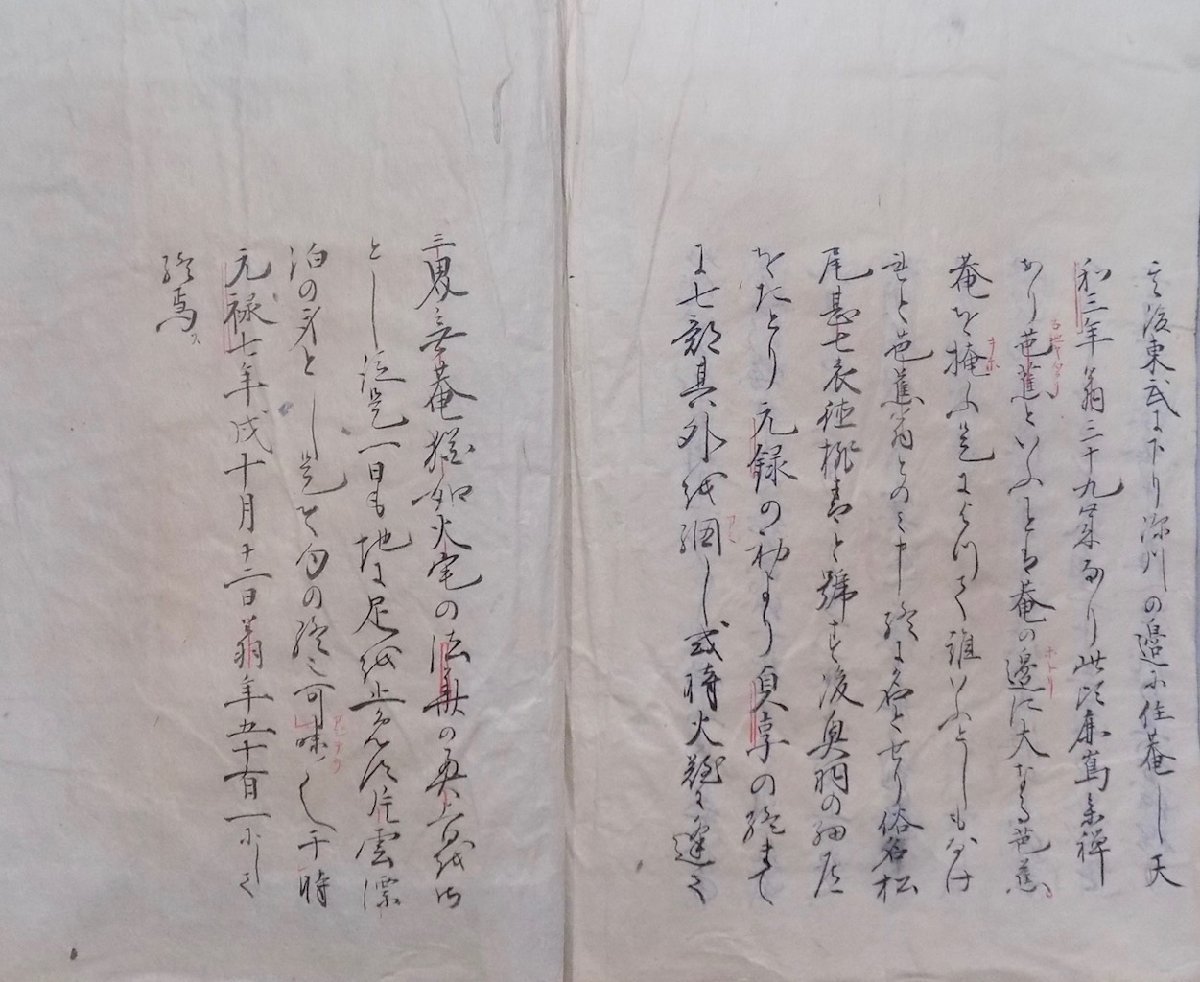 其後東武に下り深川の邊に住庵し天
和三年翁三十九歳なり此頃麻嶌参禅
あり芭蕉といふとも庵の邊に大なる芭蕉
庵を掩ふ是によつて誰いふとしもなけ
れと芭蕉翁とのミ十終に名とせり俗名松
尾甚七衣徳桃青と號す後奥羽の細道
をたとり元録の初より貞享の終まて
に七部其外を綑し或時火難に逢て
三界無庵猶如火宅の法華の要文を
とし 一日も地に足を止めす片雲漂
泊の身とし是その終之可味〳〵于時
元禄七年戌十月十二日翁年五十有一にして
終焉ス